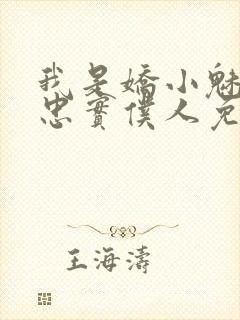 我是嬌小魅
忠實僕人免
王海濤